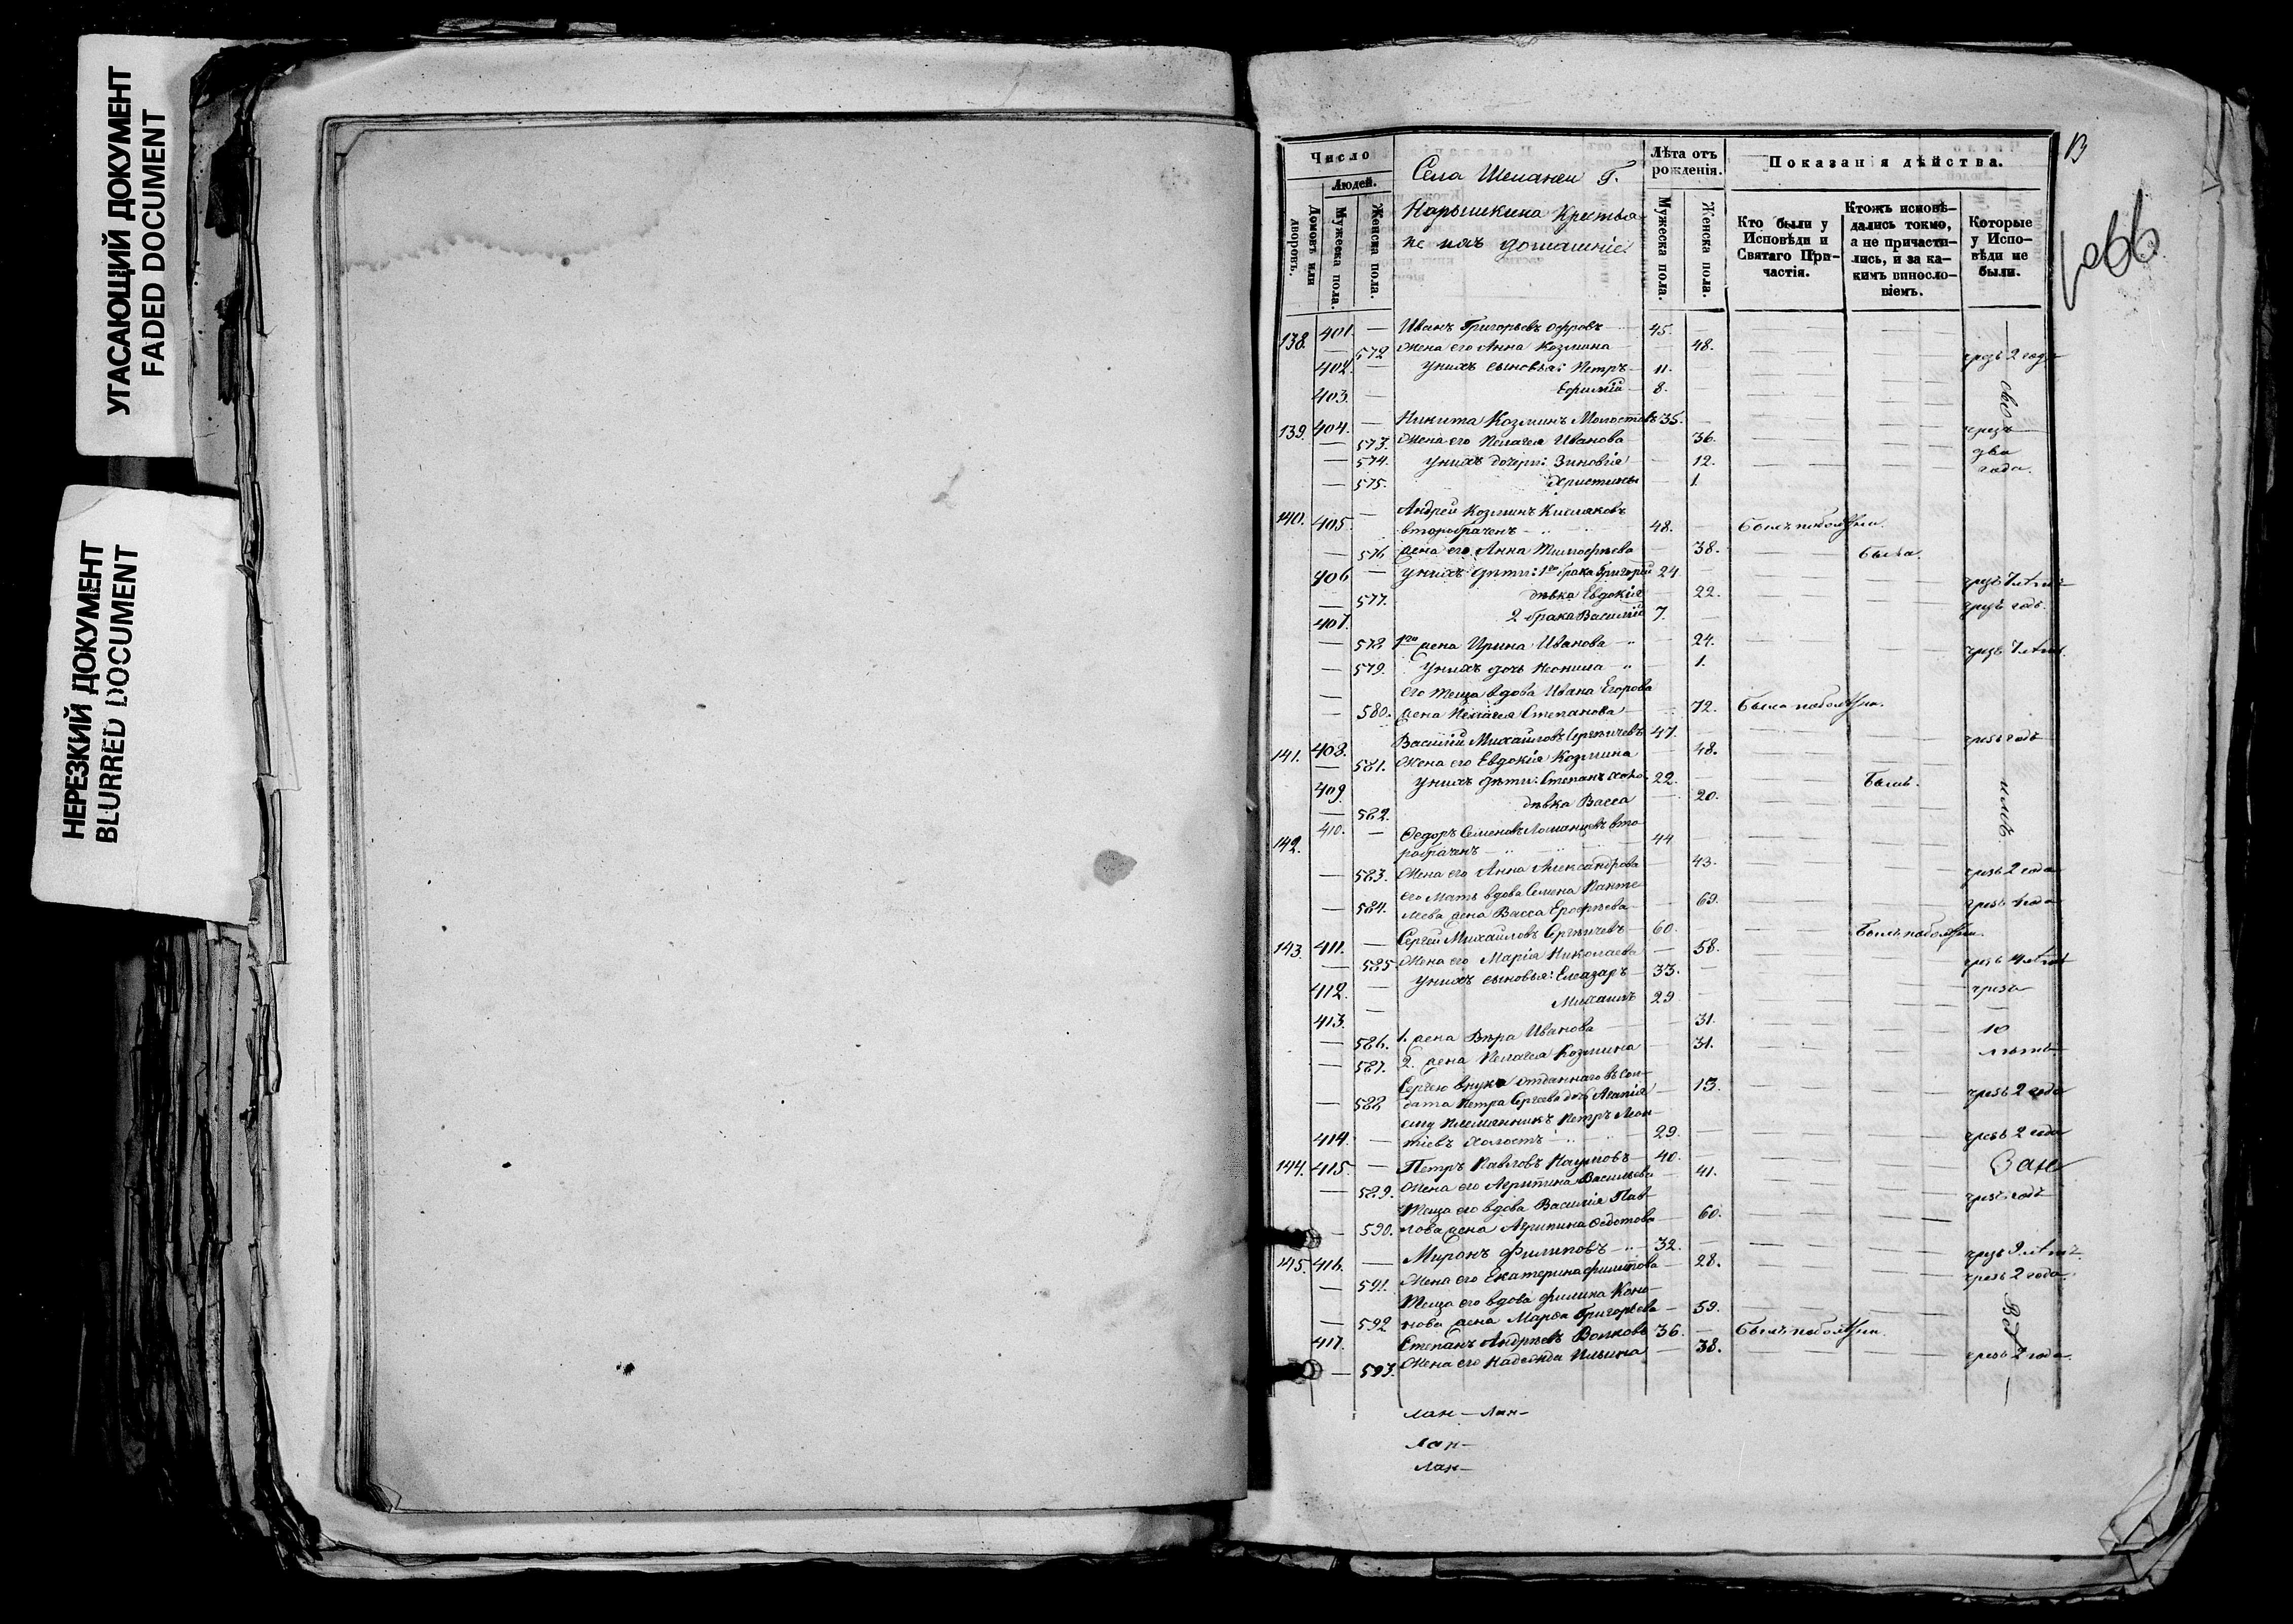 УГАСАЮЩИЙ ДОКУМЕНТ
FADED DOCUMENT
НЕРЕЗКИЙ ДОКУМЕНТ
BLURRED DOCUMENT
13
Число
Людей.
Домовъ или дворовъ.
Мужеска пола.
Женска пола.
Села Г.
Нарышкина Крестья
не ихъ домашніе.
Лѣта отъ рожденія.
Мужеска пола.
Женска пола.
Показанія дѣйства.
Кто были у Исповѣди и Святаго Причастія.
Ктожъ исповѣдались токмо, а не причастились, и за какимъ винословіемъ.
Которые у Исповѣди не были.
138. 401. — Иванъ Григорьевъ 45. —
— 572 Жена его Анна Козмина — 48. чрезъ 2 года
402. — У нихъ сыновья: Петръ — 11. —
403. — Ефимій — 8. —
139. 404. — Никита Козминъ 35. — чрезъ
— 573. Жена его Пелагея Иванова 36. два
— 574. У нихъ дочери: Зиновія — 12. года.
— 575. Христина — 1.
140. 405. — Андрей Козминъ Кисляковъ
второбраченъ — 48. —
— 576 Жена его Анна Тимофѣева — 38. — была.
406 — У нихъ дѣти: 1го брака Григорій 24
— 577. дѣвка Евдокія — 22. чрезъ годъ.
407. 2 брака Василій 7. —
— 578 1го жена Ирина Иванова — 24.
— 579. У нихъ дочь Неонила — 1.
его теща вдова Ивана Егорова
— 580. жена Пелагея Степанова — 72.
141. 408. Василій Михайловъ Сергѣичевъ 47. — чрезъ годъ
— 581. Жена его Евдокія Козмина 48.
409. У нихъ дѣти: Степанъ холо. 22. — былъ.
— 582. дѣвка Васса — 20.
142. 410. — Ѳедоръ Семеновъ вто-
робраченъ — 44 —
— 583. Жена его Анна Александрова — 43. чрезъ 2 года
его мать вдова Семена Панте
— 584. леева жена Васса Ерофѣева — 69.
143. 411. — Сергей Михайловъ Сергѣичевъ — 60. —
— 585. Жена его Марія Николаева — 58.
412. — У нихъ сыновья: Елеазаръ — 33. — чрезъ
413. — Михаилъ 29 —
— 586. 1. жена Вѣра Иванова — 31. 10
— 587. 2. жена Пелагея Козмина 31. лѣтъ
Сергею внука отданнаго въ сол-
— 588 дата Петра Сергеева дочь 13. чрезъ 2 года
ему племянникъ Петръ Леон-
414. — тіевъ холостъ 29. — чрезъ 2 года
144. 415. — Петръ Павловъ Наумовъ — 40. —
— 589. Жена его Агрипина Васильева 41. чрезъ годъ
Теща его вдова Василія Пав-
— 590. лова жена Агрипина Ѳедотова 60.
145. 416. — Миронъ Филиповъ — 32. —
— 591. Жена его Екатерина Филипова 28. чрезъ 2 года
Теща его вдова Филипа Коно-
— 592 нова жена Марѳа Григорьева — 59.
417. Степанъ Андреевъ Волковъ 36. —
— 593. Жена его Надежда Ильина — 38. чрезъ 2 года.